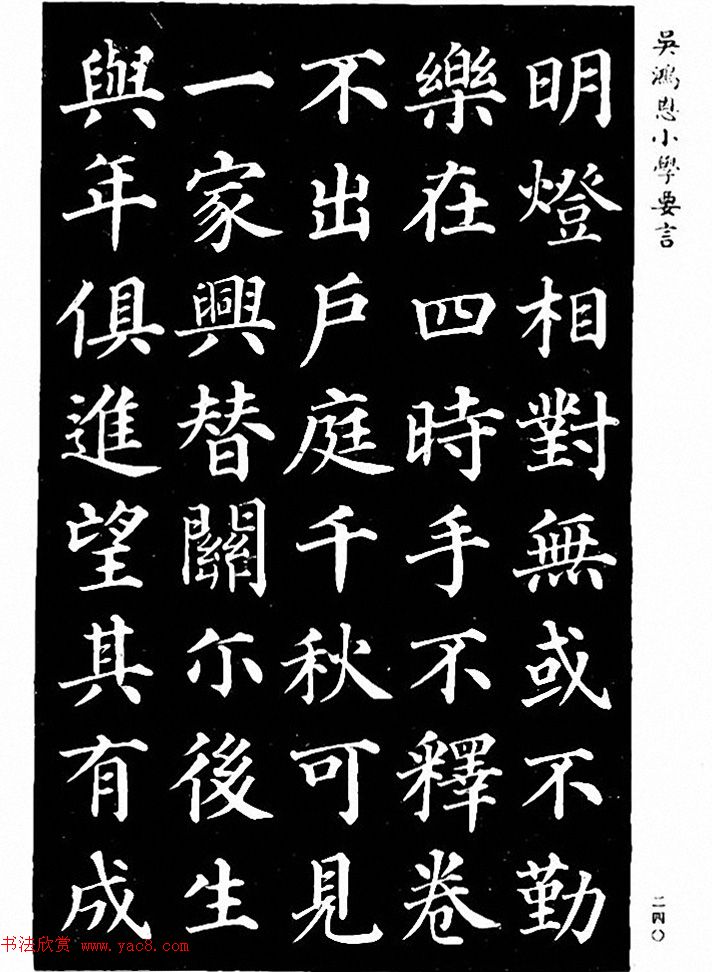 吳鴻恩小學要言
明燈相對無或不勤
樂在四時手不釋卷
不出戶庭千秋可見
一家興替關尒後生
與年俱進望其有成
二四〇
书法欣赏 www.yac8.com